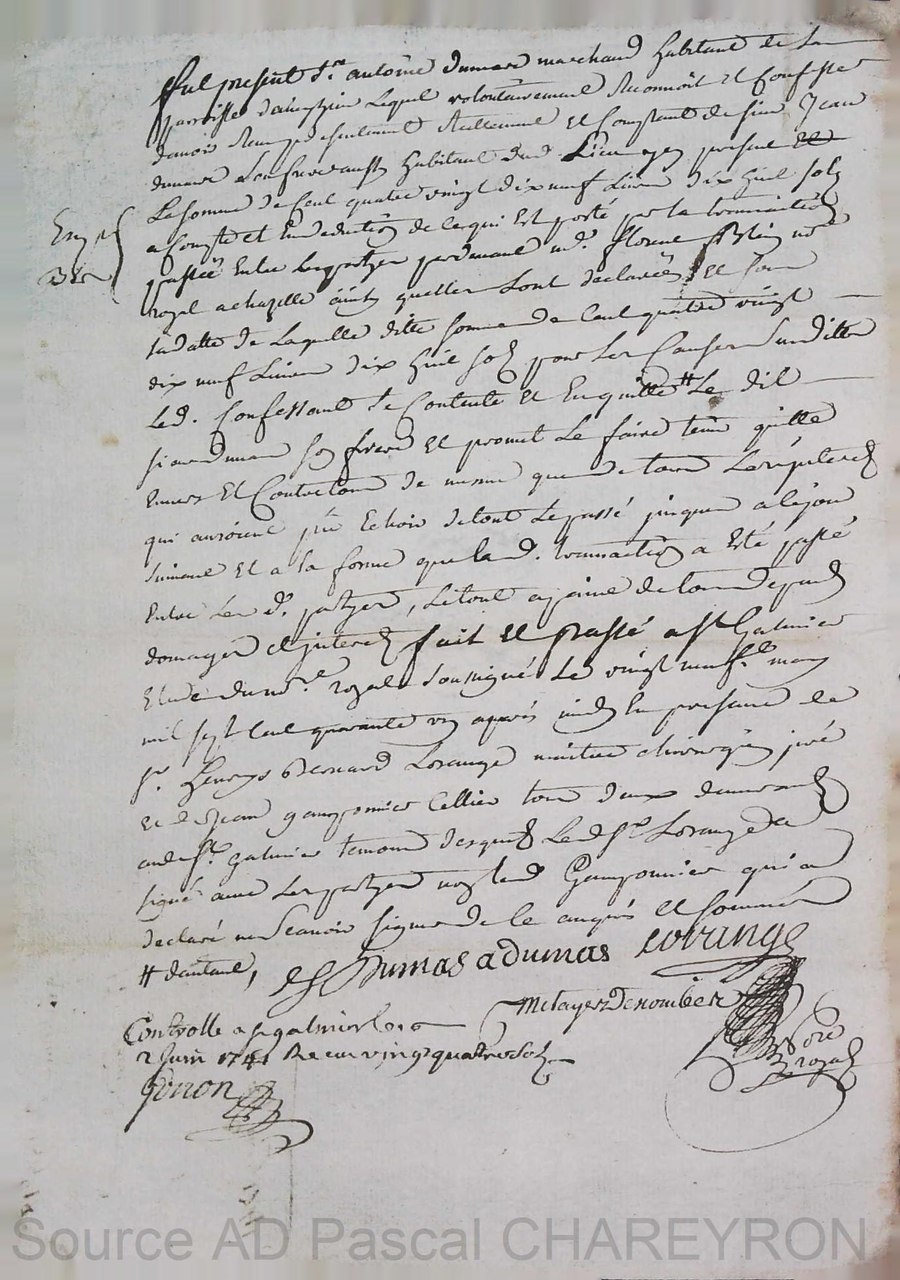 fut présent Sr. antoine dumas marchand habitant de la
parroisse lequel volontairement Reconnoit et Confesse
davoir Reellement et Comptant de sieur Jean
dumas son frere aussy habitant dud. Lieu icy present et
La somme de Cent quatre vingt dix neuf Livres dix huit sols
a Compte et En deduction de ce qui Est porté par la transaction
passée Entre Les partyes pardevant me.
royal a chazelle ainsy quelles sont declarées, et sous
sa datte de Laquelle ditte somme de Cent quatre vingt
dix neuf Livres dix huit sols pour Les Causes Susdittes
Led. Confessant se Contente Et En quitte # Le dit
sieur dumas son frere Et promet Le faire tenir quitte
Envers Et Contre tous de mesme que de tous Les
qui auroient pu Echoir de tout Le passé jusques a ce jour
suivant Et a la forme que lad. transaction a Esté passée
Entre Les d. partyes, Le tout a peine de tous depens
domages et interets fait Et passé a St Galmier
Etude du no.re royal soussigné Le vingt neuf.e may
mil sept Cent quarante un après midy En presence de
Sr. Bernard Lorange maitre chirurgien juré
et de Jean gamponnier Cellier tous deux demeurants
aud. St. galmier temoins desquels Led. Sr. Lorange a
signé avec Les partyes non led. Gamponnier qui a
declaré ne Scavoir signer de ce enquis Et sommé
# dautant,
Dumas adumas Lorange
Metayer Denombez
Nore
royal
Controlle a St galmier le
2 juin 1741 Recu vingt quatre sols
Gonon
Source AD Pascal CHAREYRON